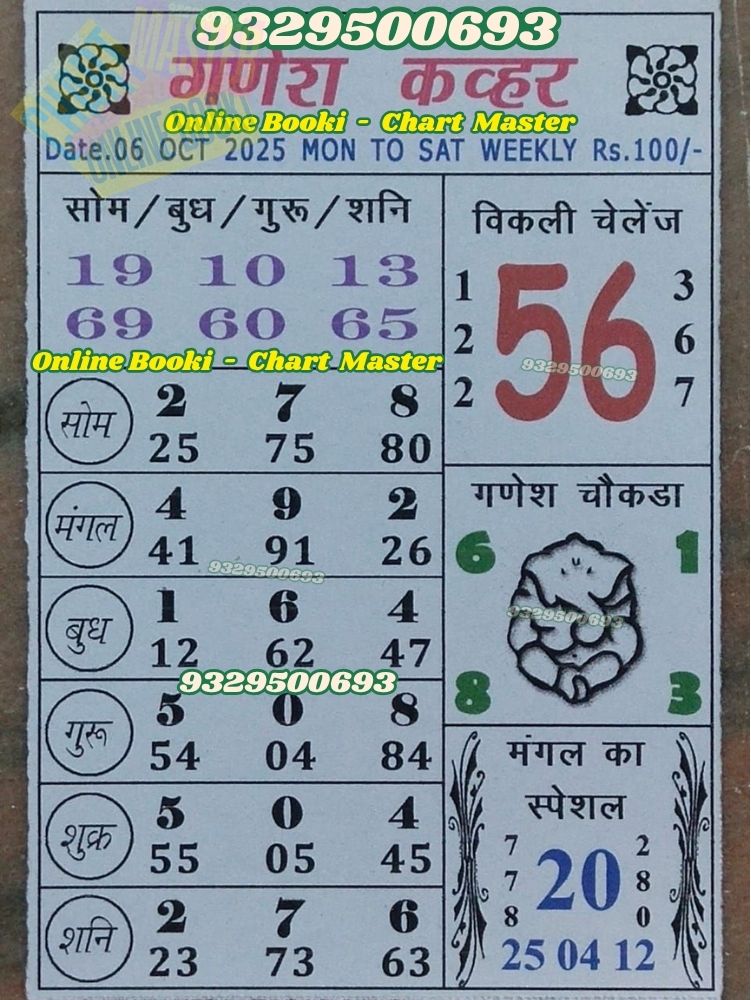 9329500693
गणेश कव्हर
Online Booki - Chart Master
Date.06 OCT 2025 MON TO SAT WEEKLY Rs.100/-
सोम/बुध/गुरू/शनि
19 10 13
69 60 65
Online Booki - Chart Master
सोम
2 7 8
25 75 80
मंगल
4 9 2
41 91 26
9329500693
बुध
1 6 4
12 62 47
9329500693
गुरू
5 0 8
54 04 84
शुक्र
5 0 4
55 05 45
शनि
2 7 6
23 73 63
विकली चेलेंज
1 56 3
2 6
2 7
9329500693
गणेश चौकडा
6 1
9329500693
8 3
मंगल का
स्पेशल
7 20 2
7 8
8 0
25 04 12